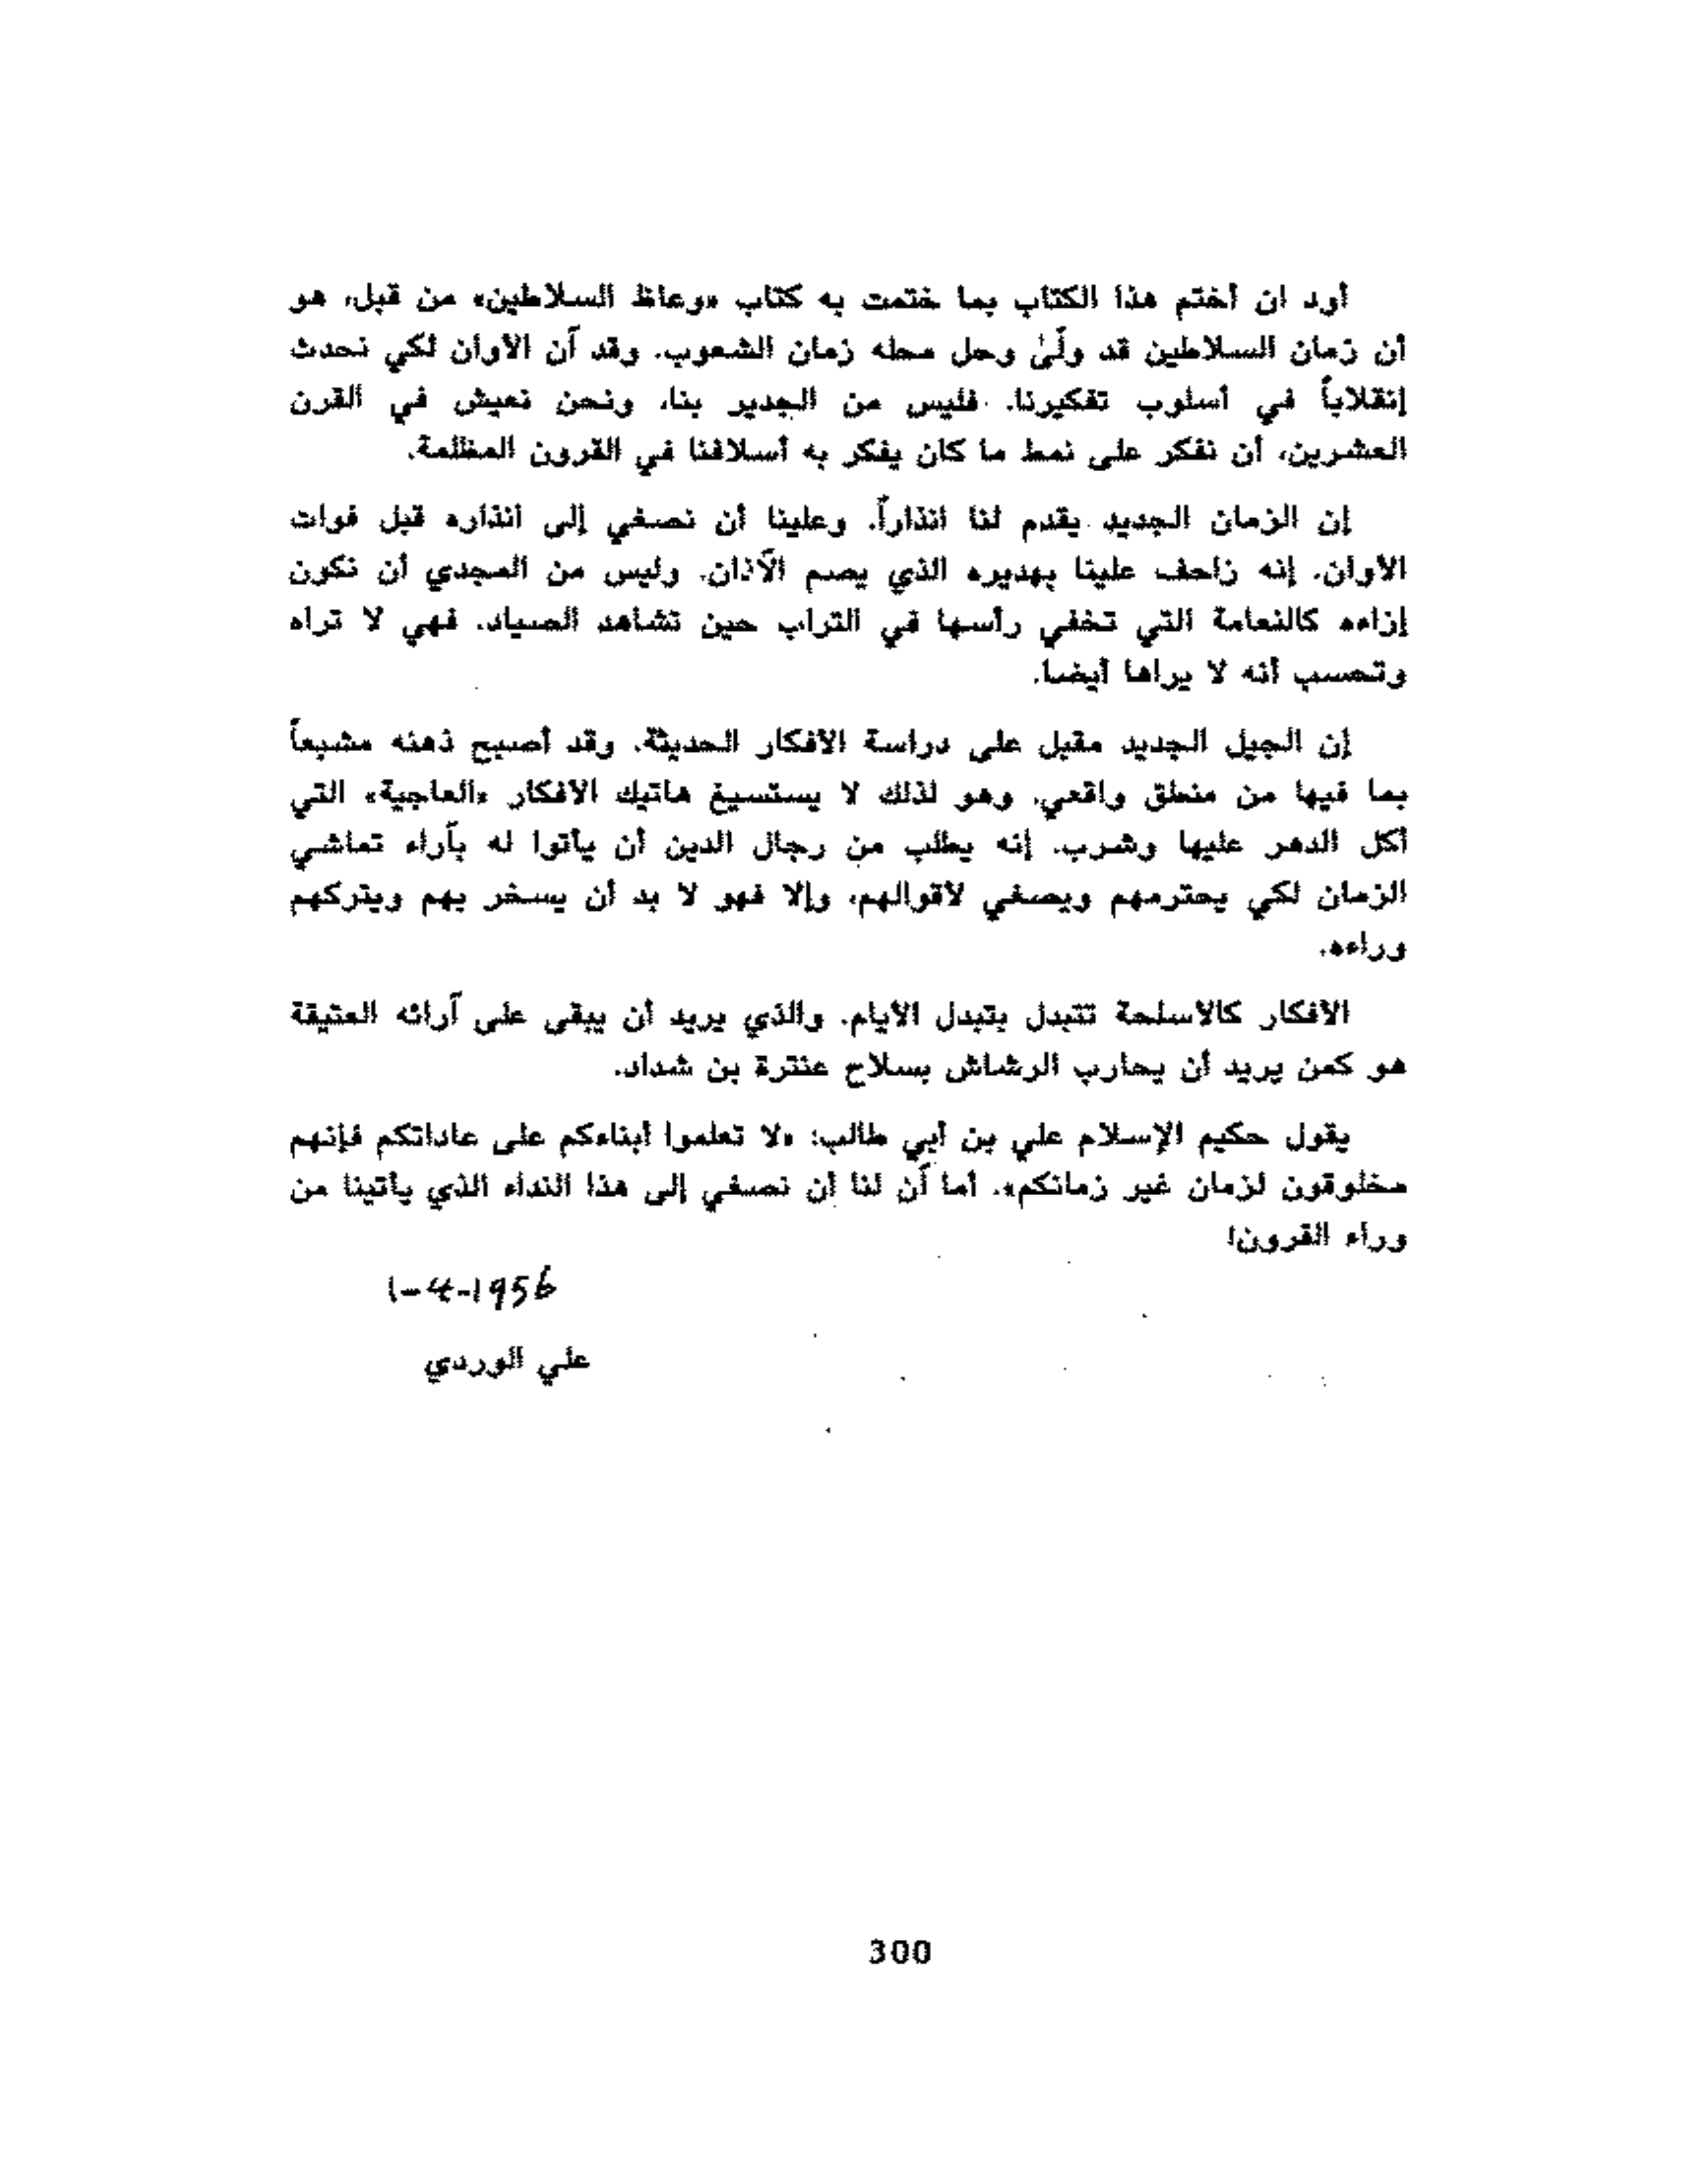 أود ان أختم هذا الكتاب بما ختمت به كتاب «وعاظ السلاطين» من قبل، هو
أن زمان السلاطين قد ولّىٰ وحل محله زمان الشعوب. وقد آن الأوان لكي نحدث
إنقلاباً في أسلوب تفكيرنا. فليس من الجدير بنا، ونحن نعيش في القرن
العشرين، أن نفكر على نمط ما كان يفكر به أسلافنا في القرون المظلمة.
إن الزمان الجديد يقدم لنا انذاراً. وعلينا أن نصغي إلى انذاره قبل فوات
الأوان. إنه زاحف علينا بهديره الذي يصم الآذان. وليس من المجدي أن نكون
إزاءه كالنعامة التي تخفي رأسها في التراب حين تشاهد الصياد. فهي لا تراه
وتحسب أنه لا يراها أيضا.
إن الجيل الجديد مقبل على دراسة الأفكار الحديثة. وقد أصبح ذهنه مشبعاً
بما فيها من منطق واقعي. وهو لذلك لا يستسيغ هاتيك الأفكار «العاجية» التي
أكل الدهر عليها وشرب. إنه يطلب من رجال الدين أن يأتوا له بآراء تماشي
الزمان لكي يحترمهم ويصغي لأقوالهم، وإلا فهو لا بد أن يسخر بهم ويتركهم
وراءه.
الأفكار كالأسلحة تتبدل بتبدل الأيام. والذي يريد أن يبقى على آرائه العتيقة
هو كمن يريد أن يحارب الرشاش بسلاح عنترة بن شداد.
يقول حكيم الإسلام علي بن أبي طالب: «لا تعلموا أبناءكم على عاداتكم فإنهم
مخلوقون لزمان غير زمانكم». أما آن لنا أن نصغي إلى هذا النداء الذي يأتينا من
وراء القرون!
1-4-1956
علي الوردي
300